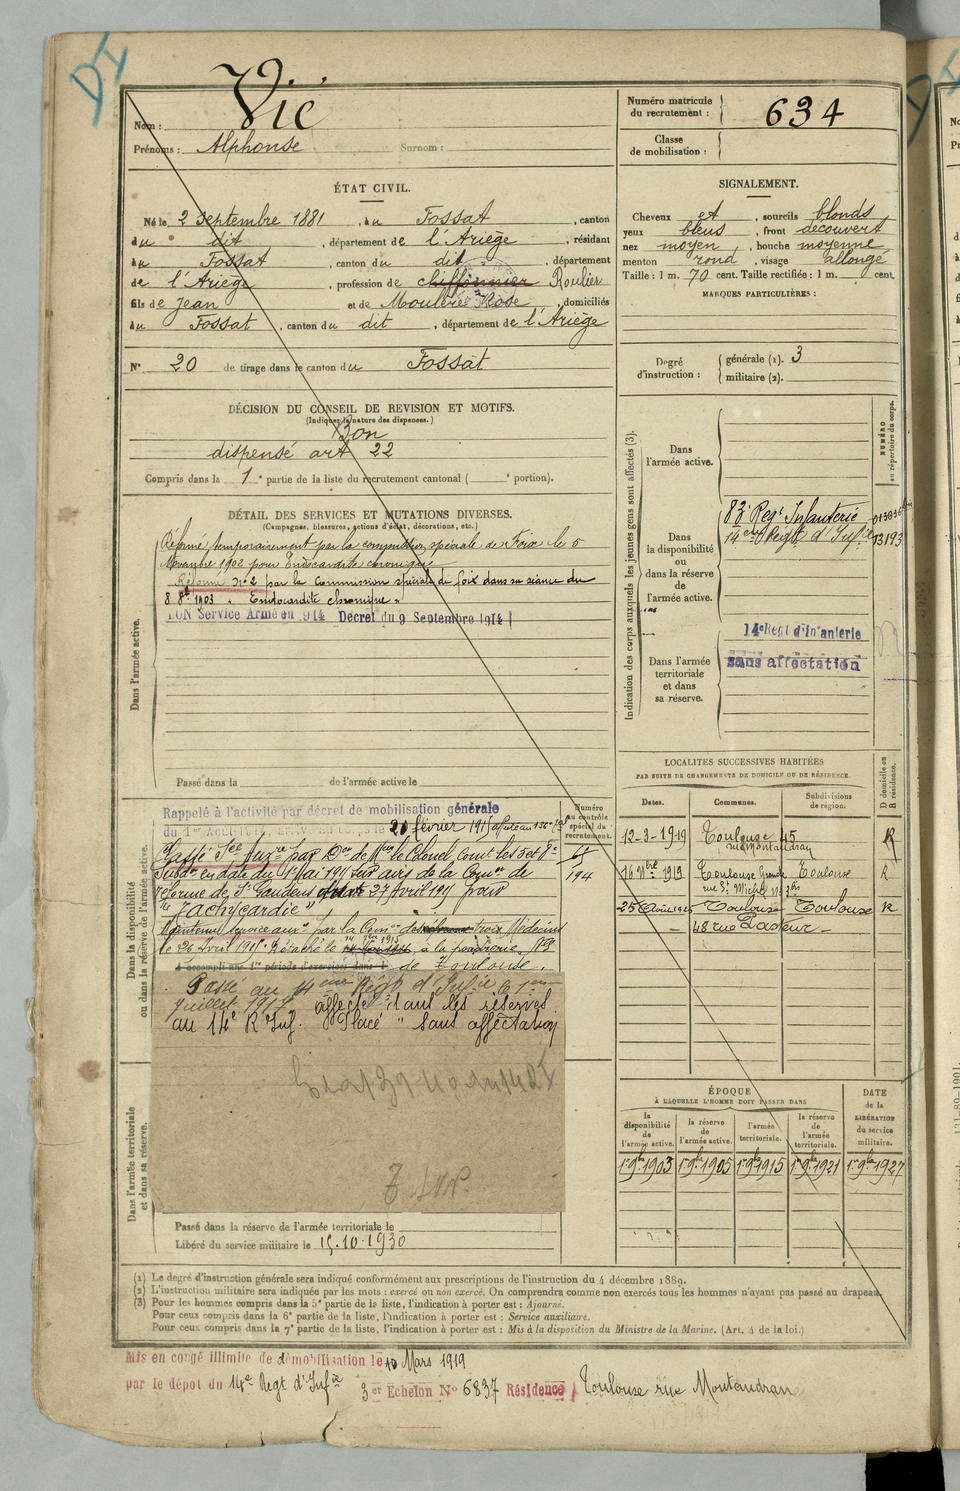 DI
Nom : Vic
Prénoms : Alphonse Surnom :
Numéro matricule du recrutement : 634
Classe de mobilisation :
ÉTAT CIVIL.
Né le 2 Septembre 1881, au Fossat, canton
du dit, département de l'Ariège, résidant
au Fossat, canton du dit, département
de l'Ariège, profession de chiffonnier Roulier
fils de Jean et de Rose, domiciliés
au Fossat, canton du dit, département de l'Ariège
N° 20 de tirage dans le canton du Fossat
SIGNALEMENT.
Cheveux et, sourcils blonds
yeux bleus, front découvert
nez moyen, bouche moyenne
menton rond, visage allongé
Taille : 1 m. 70 cent. Taille rectifiée : 1 m. cent.
MARQUES PARTICULIÈRES :
Degré d'instruction : générale (1). 3
militaire (2).
DÉCISION DU CONSEIL DE REVISION ET MOTIFS.
(Indiquer la nature des dispenses.)
Bon
dispensé art 22
Compris dans la 1e partie de la liste du recrutement cantonal ( e portion).
DÉTAIL DES SERVICES ET MUTATIONS DIVERSES.
(Campagnes, blessures, actions d'éclat, décorations, etc.)
Dans l'armée active.
Réformé temporairement par la commission spéciale de Foix le 5
Novembre 1902 pour Endocardite chronique
Réformé N° 2 par la Commission spéciale de foix dans sa séance du
8 8bre 1903 "Endocardite chronique"
BON Service Armé en 1914 Décret du 9 Septembre 1914
Passé dans la de l'armée active le
Indication des corps auxquels les jeunes gens sont affectés (3).
NUMÉRO au répertoire du corps.
Dans l'armée active.
Dans la disponibilité ou dans la réserve de l'armée active.
83e Regt Infanterie
14eme Régt d'Infie 13193
Dans l'armée territoriale et dans sa réserve.
14e Regt d'Infanterie
sans affectation
Dans la disponibilité ou dans la réserve de l'armée active.
Numéro au contrôle spécial du recrutement.
Rappelé à l'activité par décret de mobilisation générale
du 1er Août 1914, arrivé au corps le 20 février 1915
194
Passé Sce Auxre par Don de Mr le Colonel Comt les 5e et 8e
Subdon en date du 1er Mai 1915 sur avis de la Comon de
réforme de St Gaudens du 27 Avril 1915 pour
"Tachycardie"
Maintenu service auxre par la Comon de trois Médecins
à la poudrerie Nle
de Toulouse.
Passé au 14eme Régt d'Infie le 1er
Juillet 1917 affecté dans les réserves
au 14e R Inf. Placé "Sans affectation
LOCALITÉS SUCCESSIVES HABITÉES
PAR SUITE DE CHANGEMENTS DE DOMICILE OU DE RÉSIDENCE.
Dates. Communes. Subdivisions de région. D domicile ou R résidence.
12-3-1919 Toulouse 45 R
rue Montaudran
16 Nbre 1919 Toulouse Grande Toulouse R
rue St Michel N° 3bis
25 Août 1925 Toulouse Toulouse R
48 rue Pasteur
ÉPOQUE
À LAQUELLE L'HOMME DOIT PASSER DANS
la disponibilité de l'armée active. la réserve de l'armée active. l'armée territoriale. la réserve de l'armée territoriale. DATE de la LIBÉRATION du service militaire.
1er 9bre 1903 1er 9bre 1905 1er 9bre 1915 1er 9bre 1921 1er 9bre 1927
Dans l'armée territoriale et dans sa réserve.
Passé dans la réserve de l'armée territoriale le
Libéré du service militaire le 15.10.1930
(1) Le degré d'instruction générale sera indiqué conformément aux prescriptions de l'instruction du 4 décembre 1889.
(2) L'instruction militaire sera indiquée par les mots : exercé ou non exercé. On comprendra comme non exercés tous les hommes n'ayant pas passé au drapeau.
(3) Pour les hommes compris dans la 5e partie de la liste, l'indication à porter est : Ajourné.
Pour ceux compris dans la 6e partie de la liste, l'indication à porter est : Service auxiliaire.
Pour ceux compris dans la 7e partie de la liste, l'indication à porter est : Mis à la disposition du Ministre de la Marine. (Art. 4 de la loi.)
Mis en congé illimité de démobilisation le 10 Mars 1919
par le dépôt du 14e Regt d'Infie 3er Echelon N° 6837 Résidence Toulouse rue Montaudran